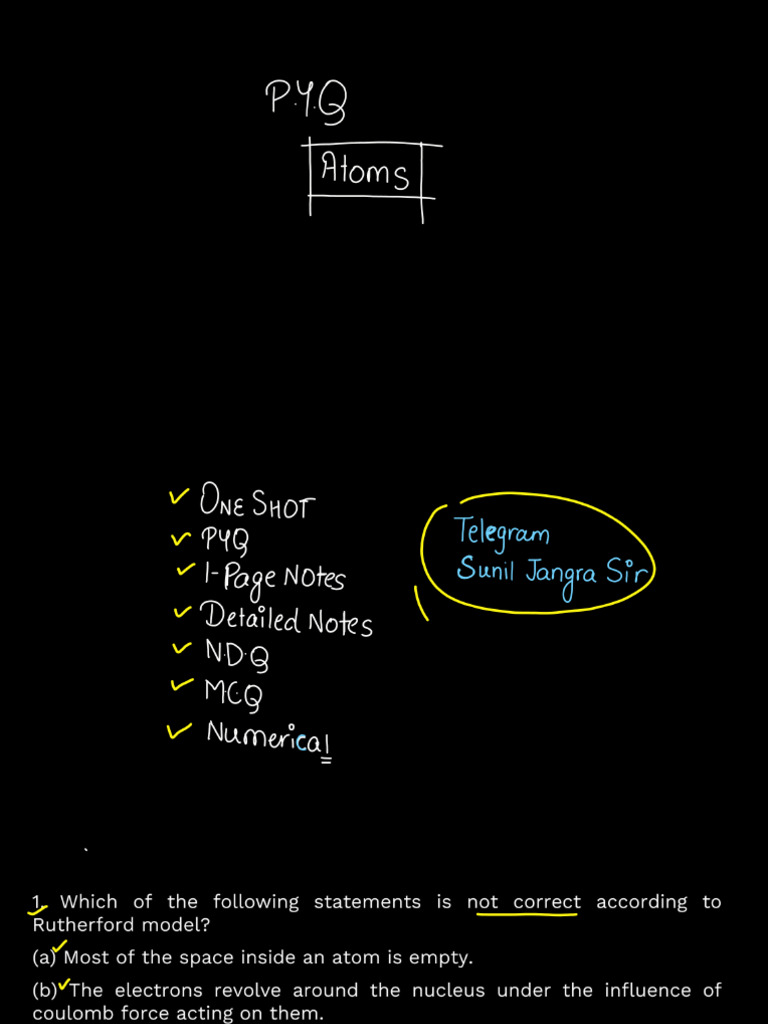 P.Y.Q
Atoms
✓ ONE SHOT
✓ PYQ
✓ 1-Page Notes
✓ Detailed Notes
✓ N.D.Q
✓ M.C.Q
✓ Numerical
Telegram
Sunil Jangra Sir
1. Which of the following statements is not correct according to
Rutherford model?
(a) Most of the space inside an atom is empty.
(b) The electrons revolve around the nucleus under the influence of
coulomb force acting on them.